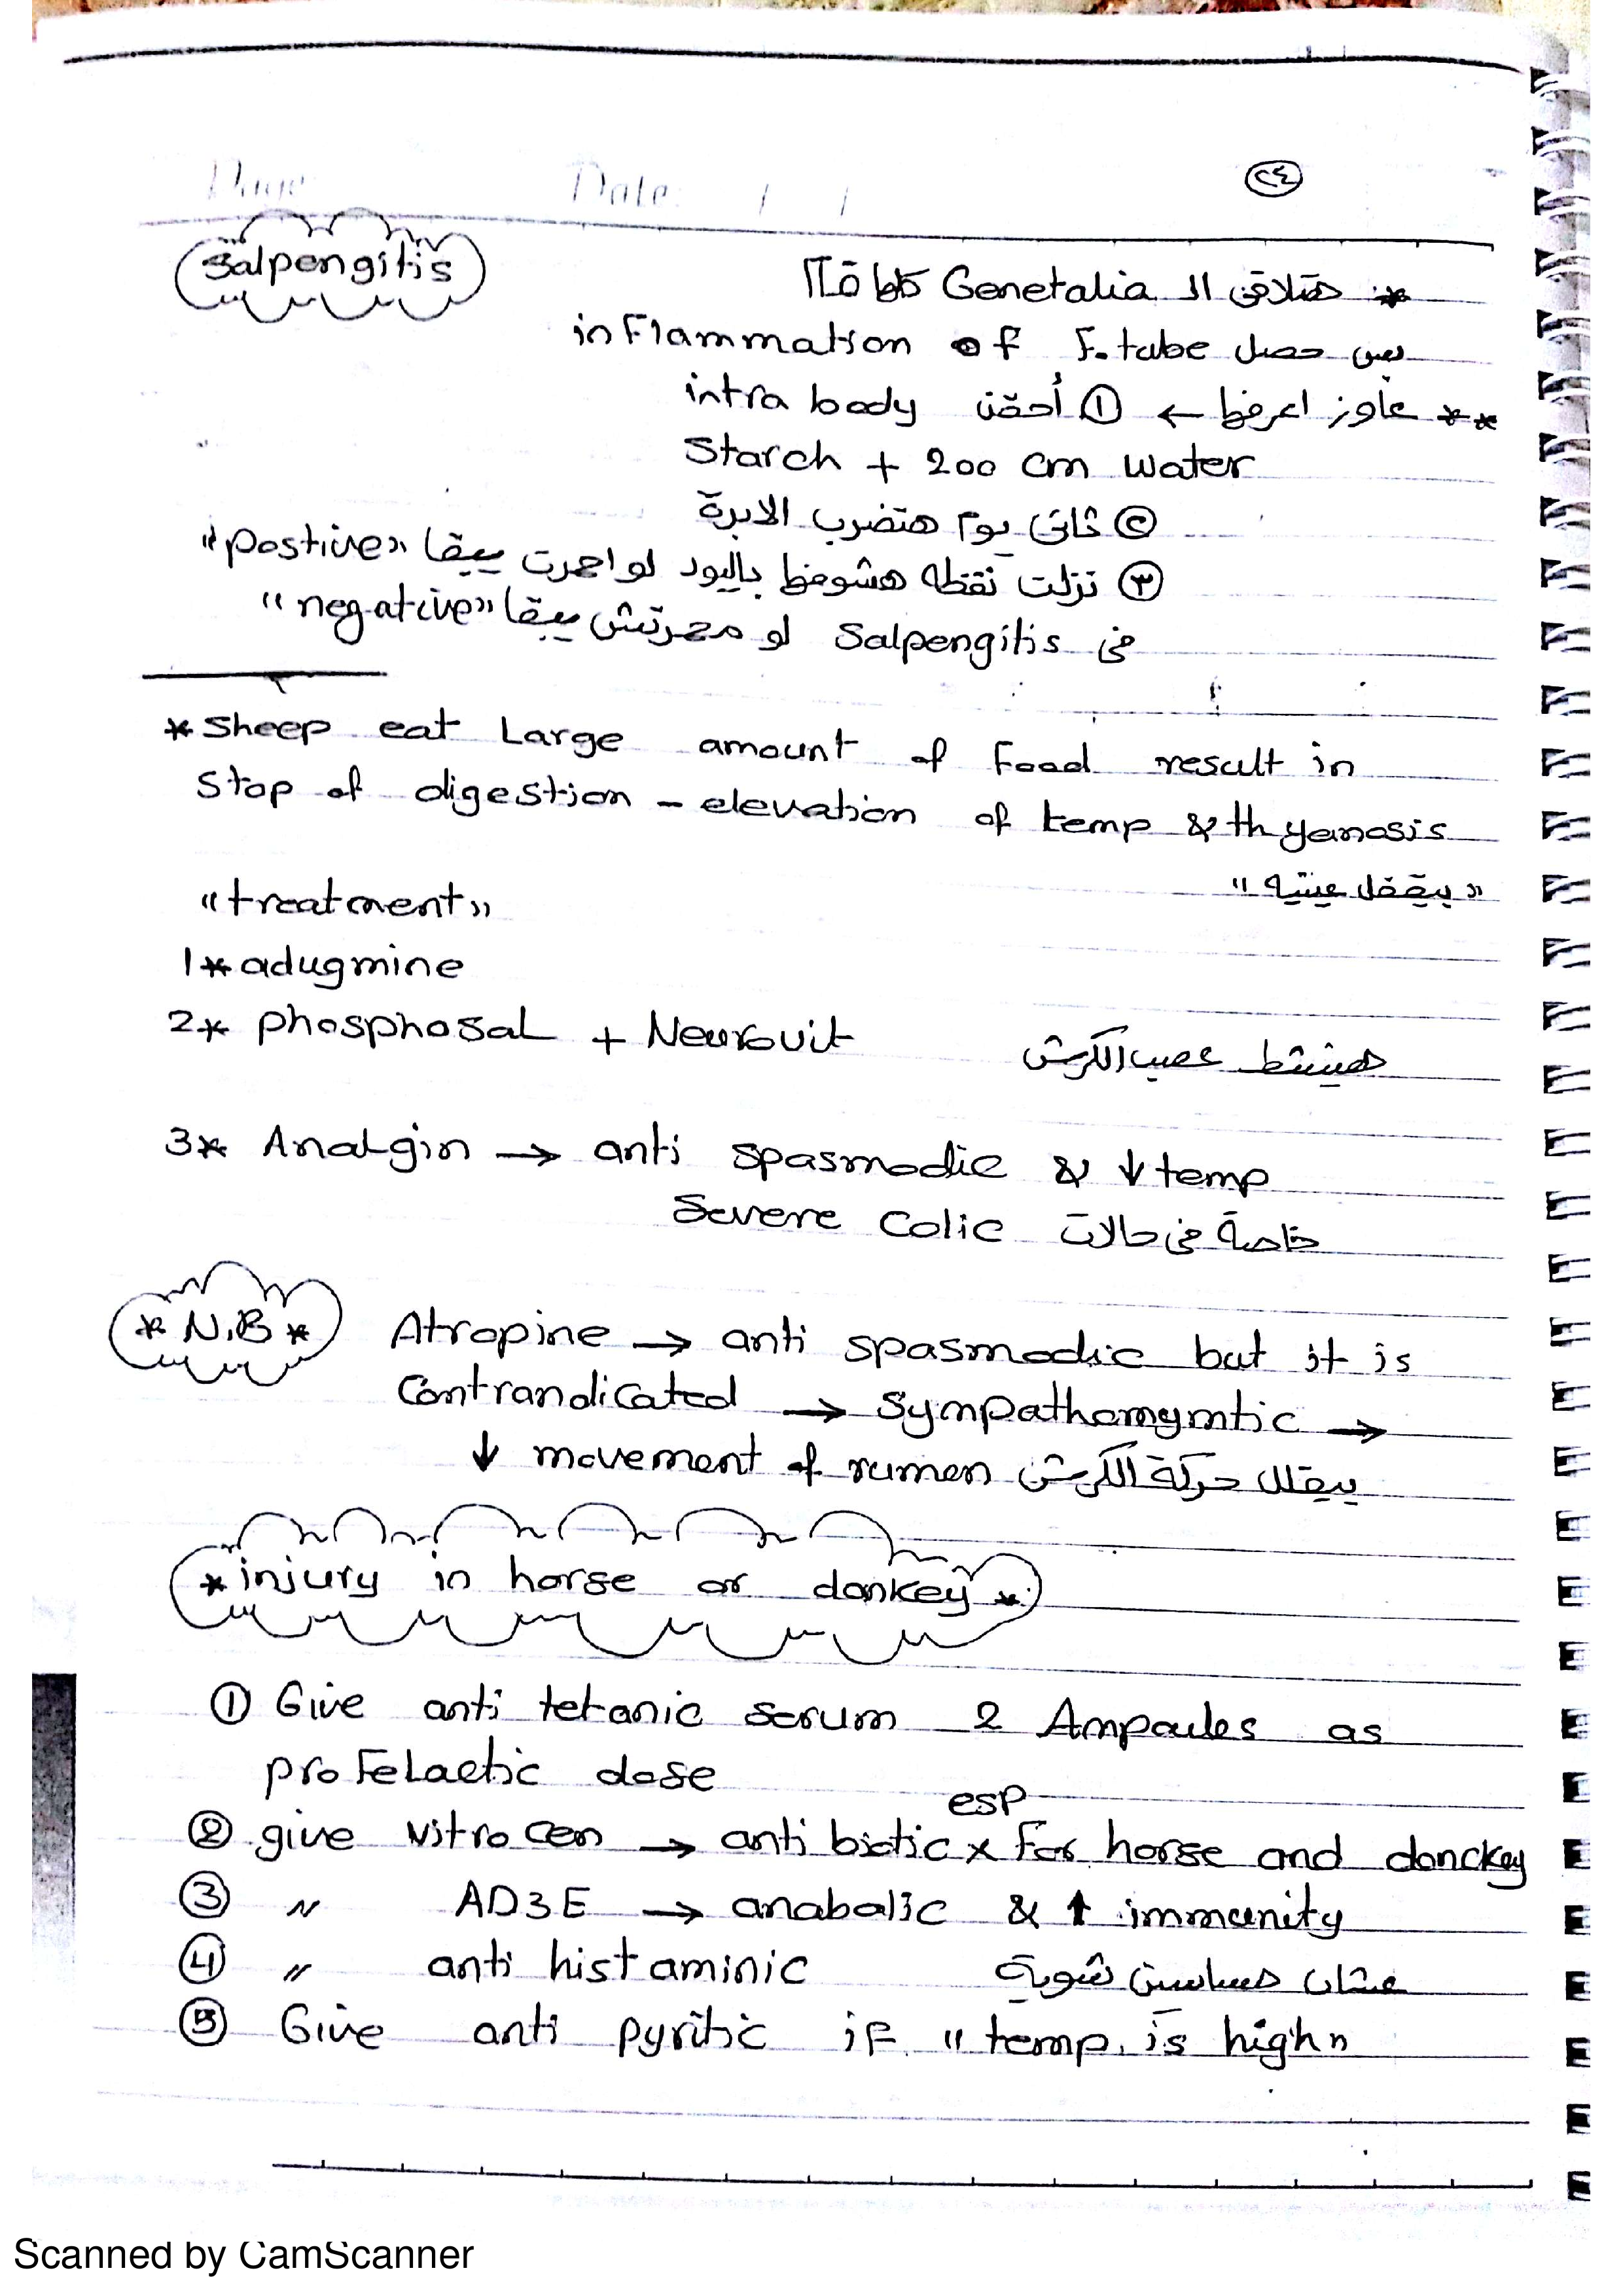 Page Date: / /
٢٤
Salpengitis
* هتلاقى ال Genetalia كلها تمام
بس حصل inflammation of F.tube
** عاوز اعرفها ← ① أحقن intra body
Starch + 200 cm water
② ثانى يوم هتضرب الابرة
③ نزلت نقطه هشوفها باليود لو احمرت يبقا «postive»
فى Salpengitis لو محمرتش يبقا «negative»
* Sheep eat Large amount of food result in
Stop of digestion - elevation of temp & thyanosis
« بيقفل عينيه »
«treatment»
1* adugmine
2* phosphosal + Neurovit هينشط عصب الكرش
3* Analgin → anti spasmodic & ↓ temp
خاصة فى حالات Severe Colic
* N.B * Atropine → anti spasmodic but it is
Contrandicated → Sympathomymtic →
↓ movement of rumen بيقلل حركة الكرش
* injury in horse or donkey *
① Give anti tetanic serum 2 Ampoules as
profelactic dose
② give Vitrocen → anti biotic x esp for horse and donckey
③ " AD3E → anabolic & ↑ immunity
④ " anti histaminic عشان حساسين شوية
⑤ Give anti pyritic if " temp. is high "
Scanned by CamScanner